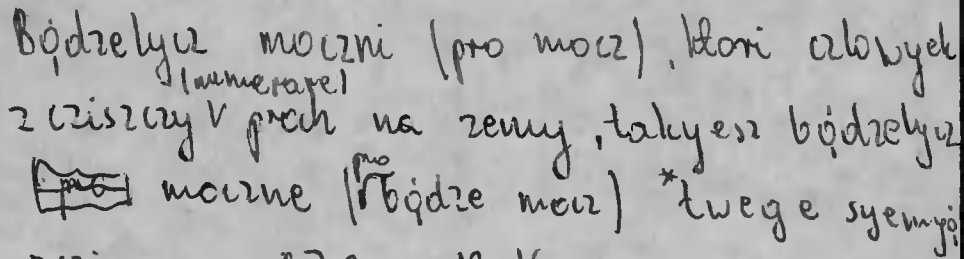 Bǫdzelycz moczni (pro mocz), ktori czlowyek
(numerare)
zcziszczy prach na zemy, takyesz bǫdzelycz
moczne (pro bǫdze mocz) *twege syemyǫ